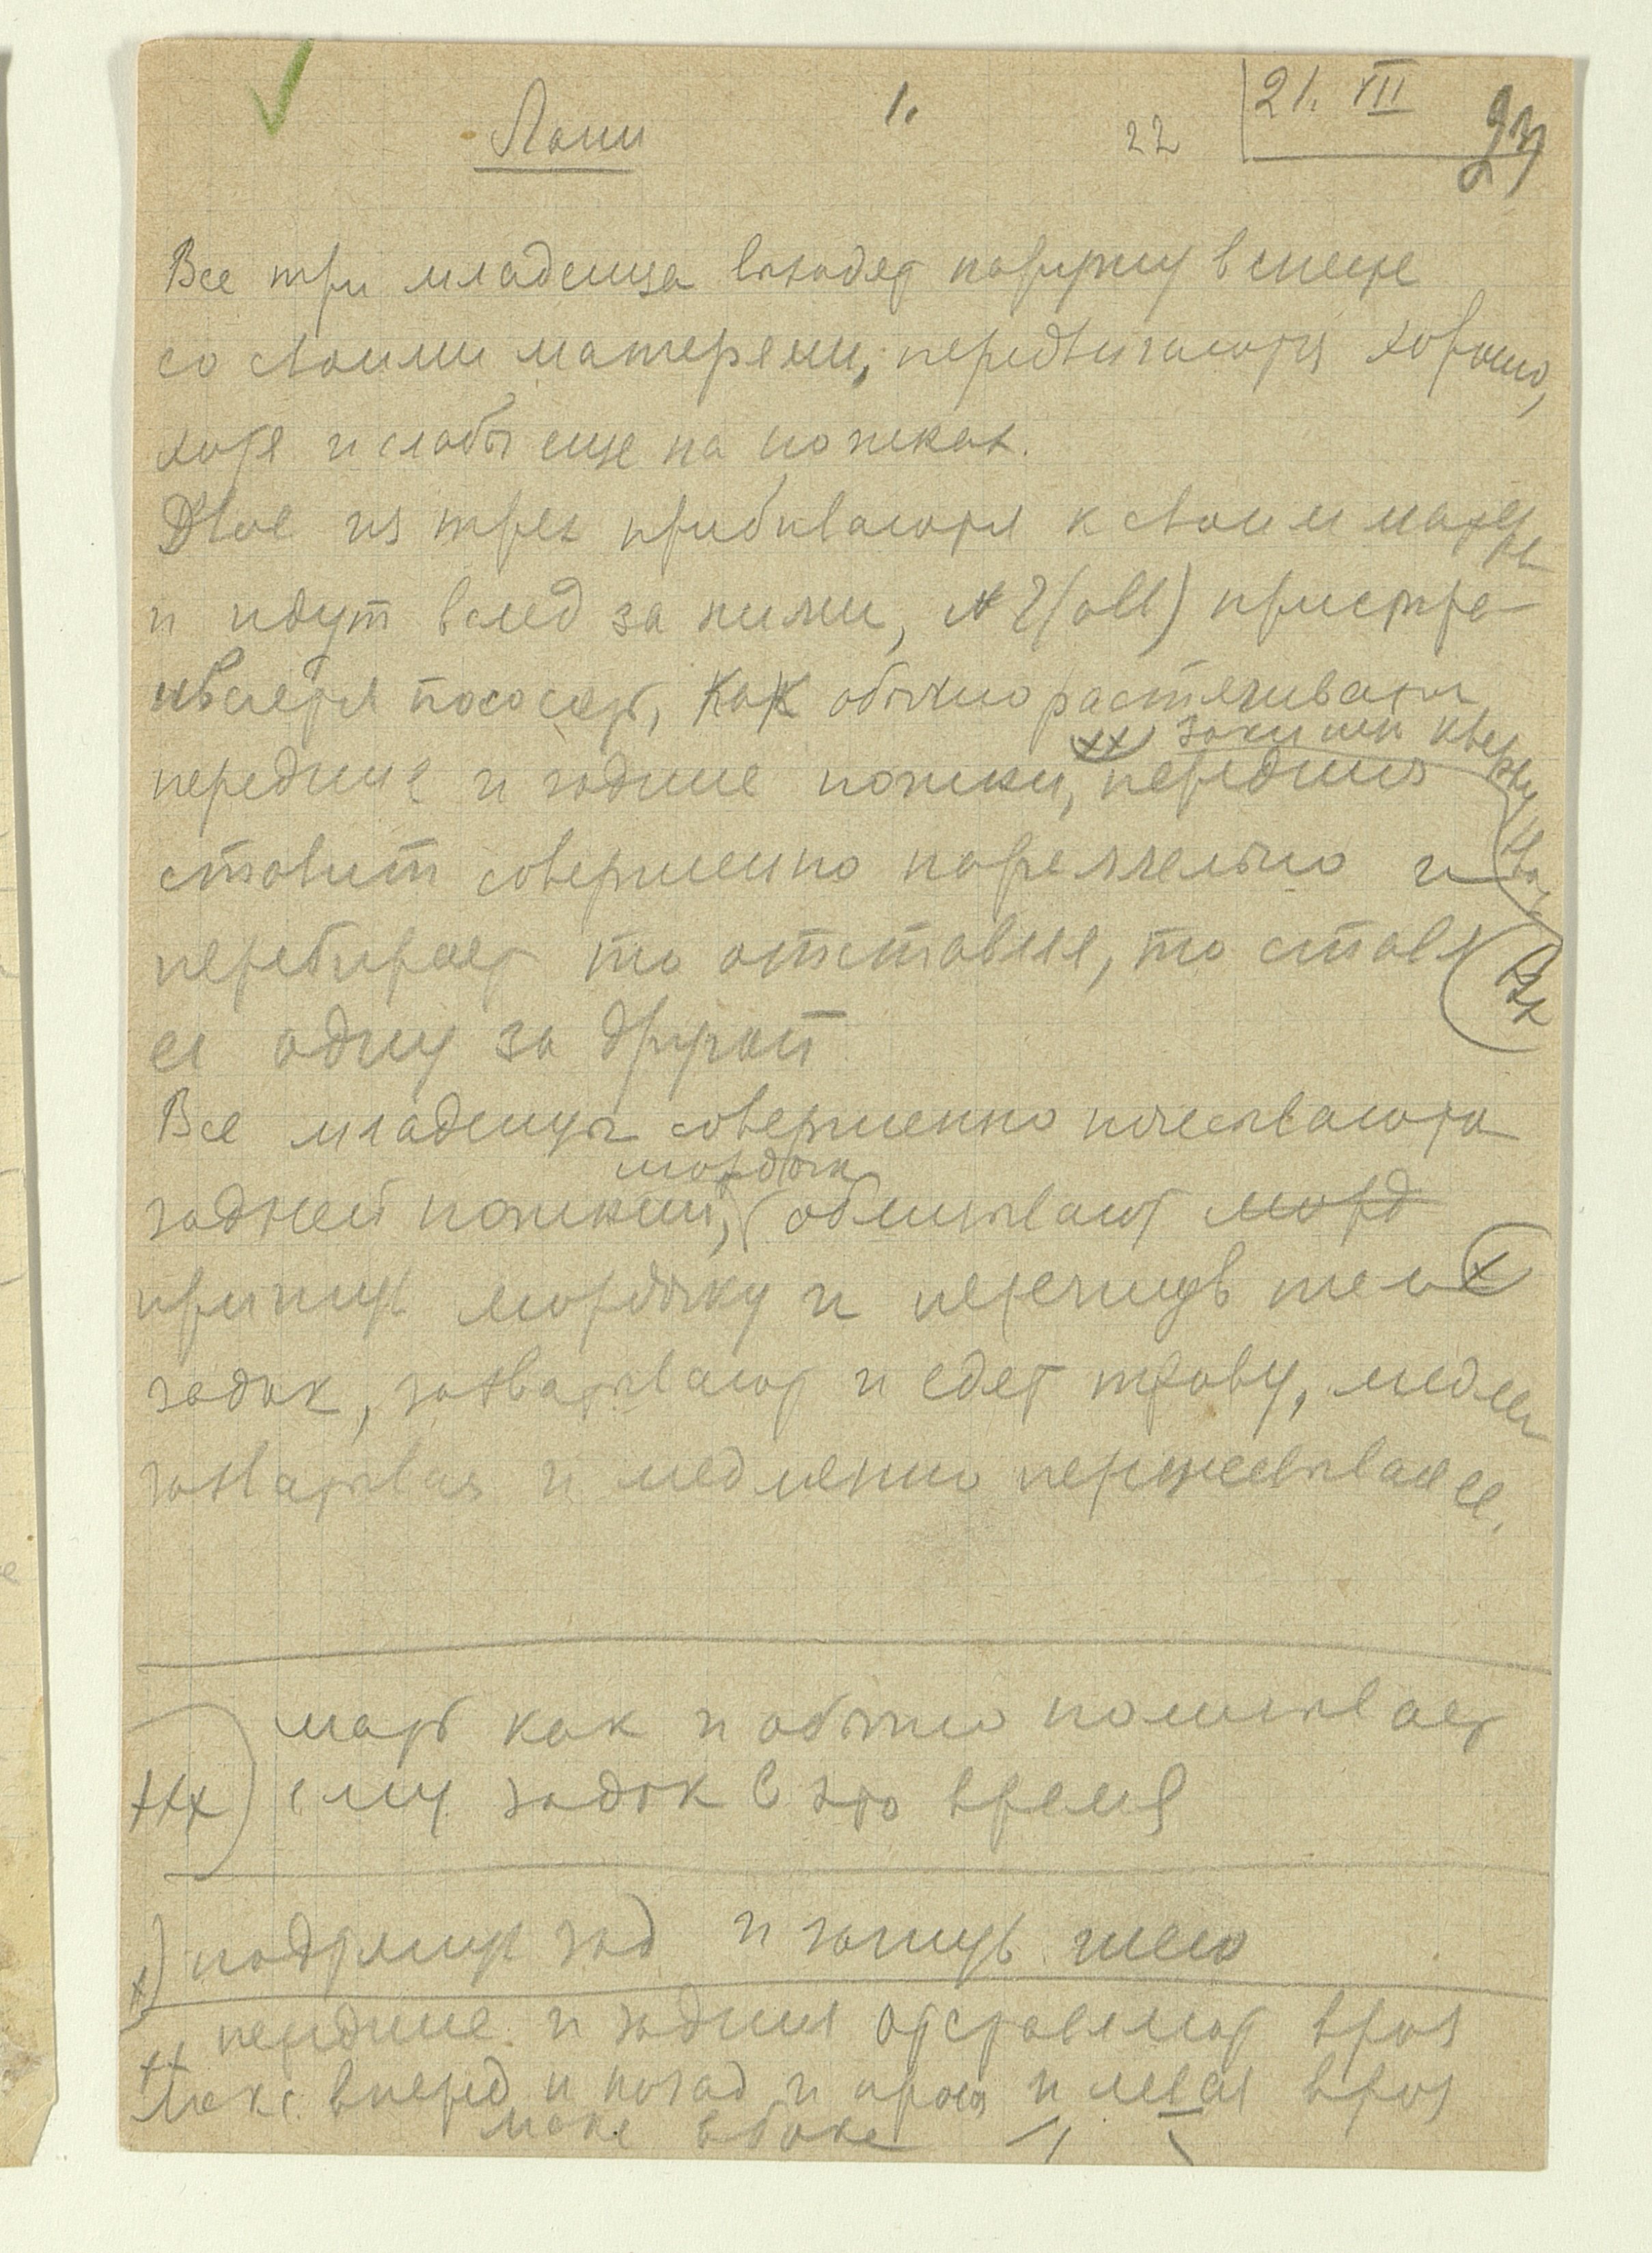 Лани
1.
22
21. VII
Все три младенца выходят наружу вместе
со своими матерями, передвигаются хорошо,
хотя и слабы еще на ножках.
Двое из трех прибиваются к своим матеря
и идут вслед за ними, № 2 пристра
ивается пососать, как обычно растягивает
xx) закинии кверху
передние и задние ножки, передния
ставит совершенно параллельно и
перебирает то отставляя, то ставя
ея одну за другой
Все младенцы совершенно почесываются
мордочк
задней ножкий, облизывают морд
пригнув мордочку и перегнув тело x
задок, захватывают и едят траву, медлен
захватывая и медленно пережевывая ее.
мать как и обычно полизывает
xxx) ему задок в это время
x) подтянув зад и загнув шею
передние и задния отставляют врозь
xx
макс. вперед и назад и правая и левая врозь
макс вбоке